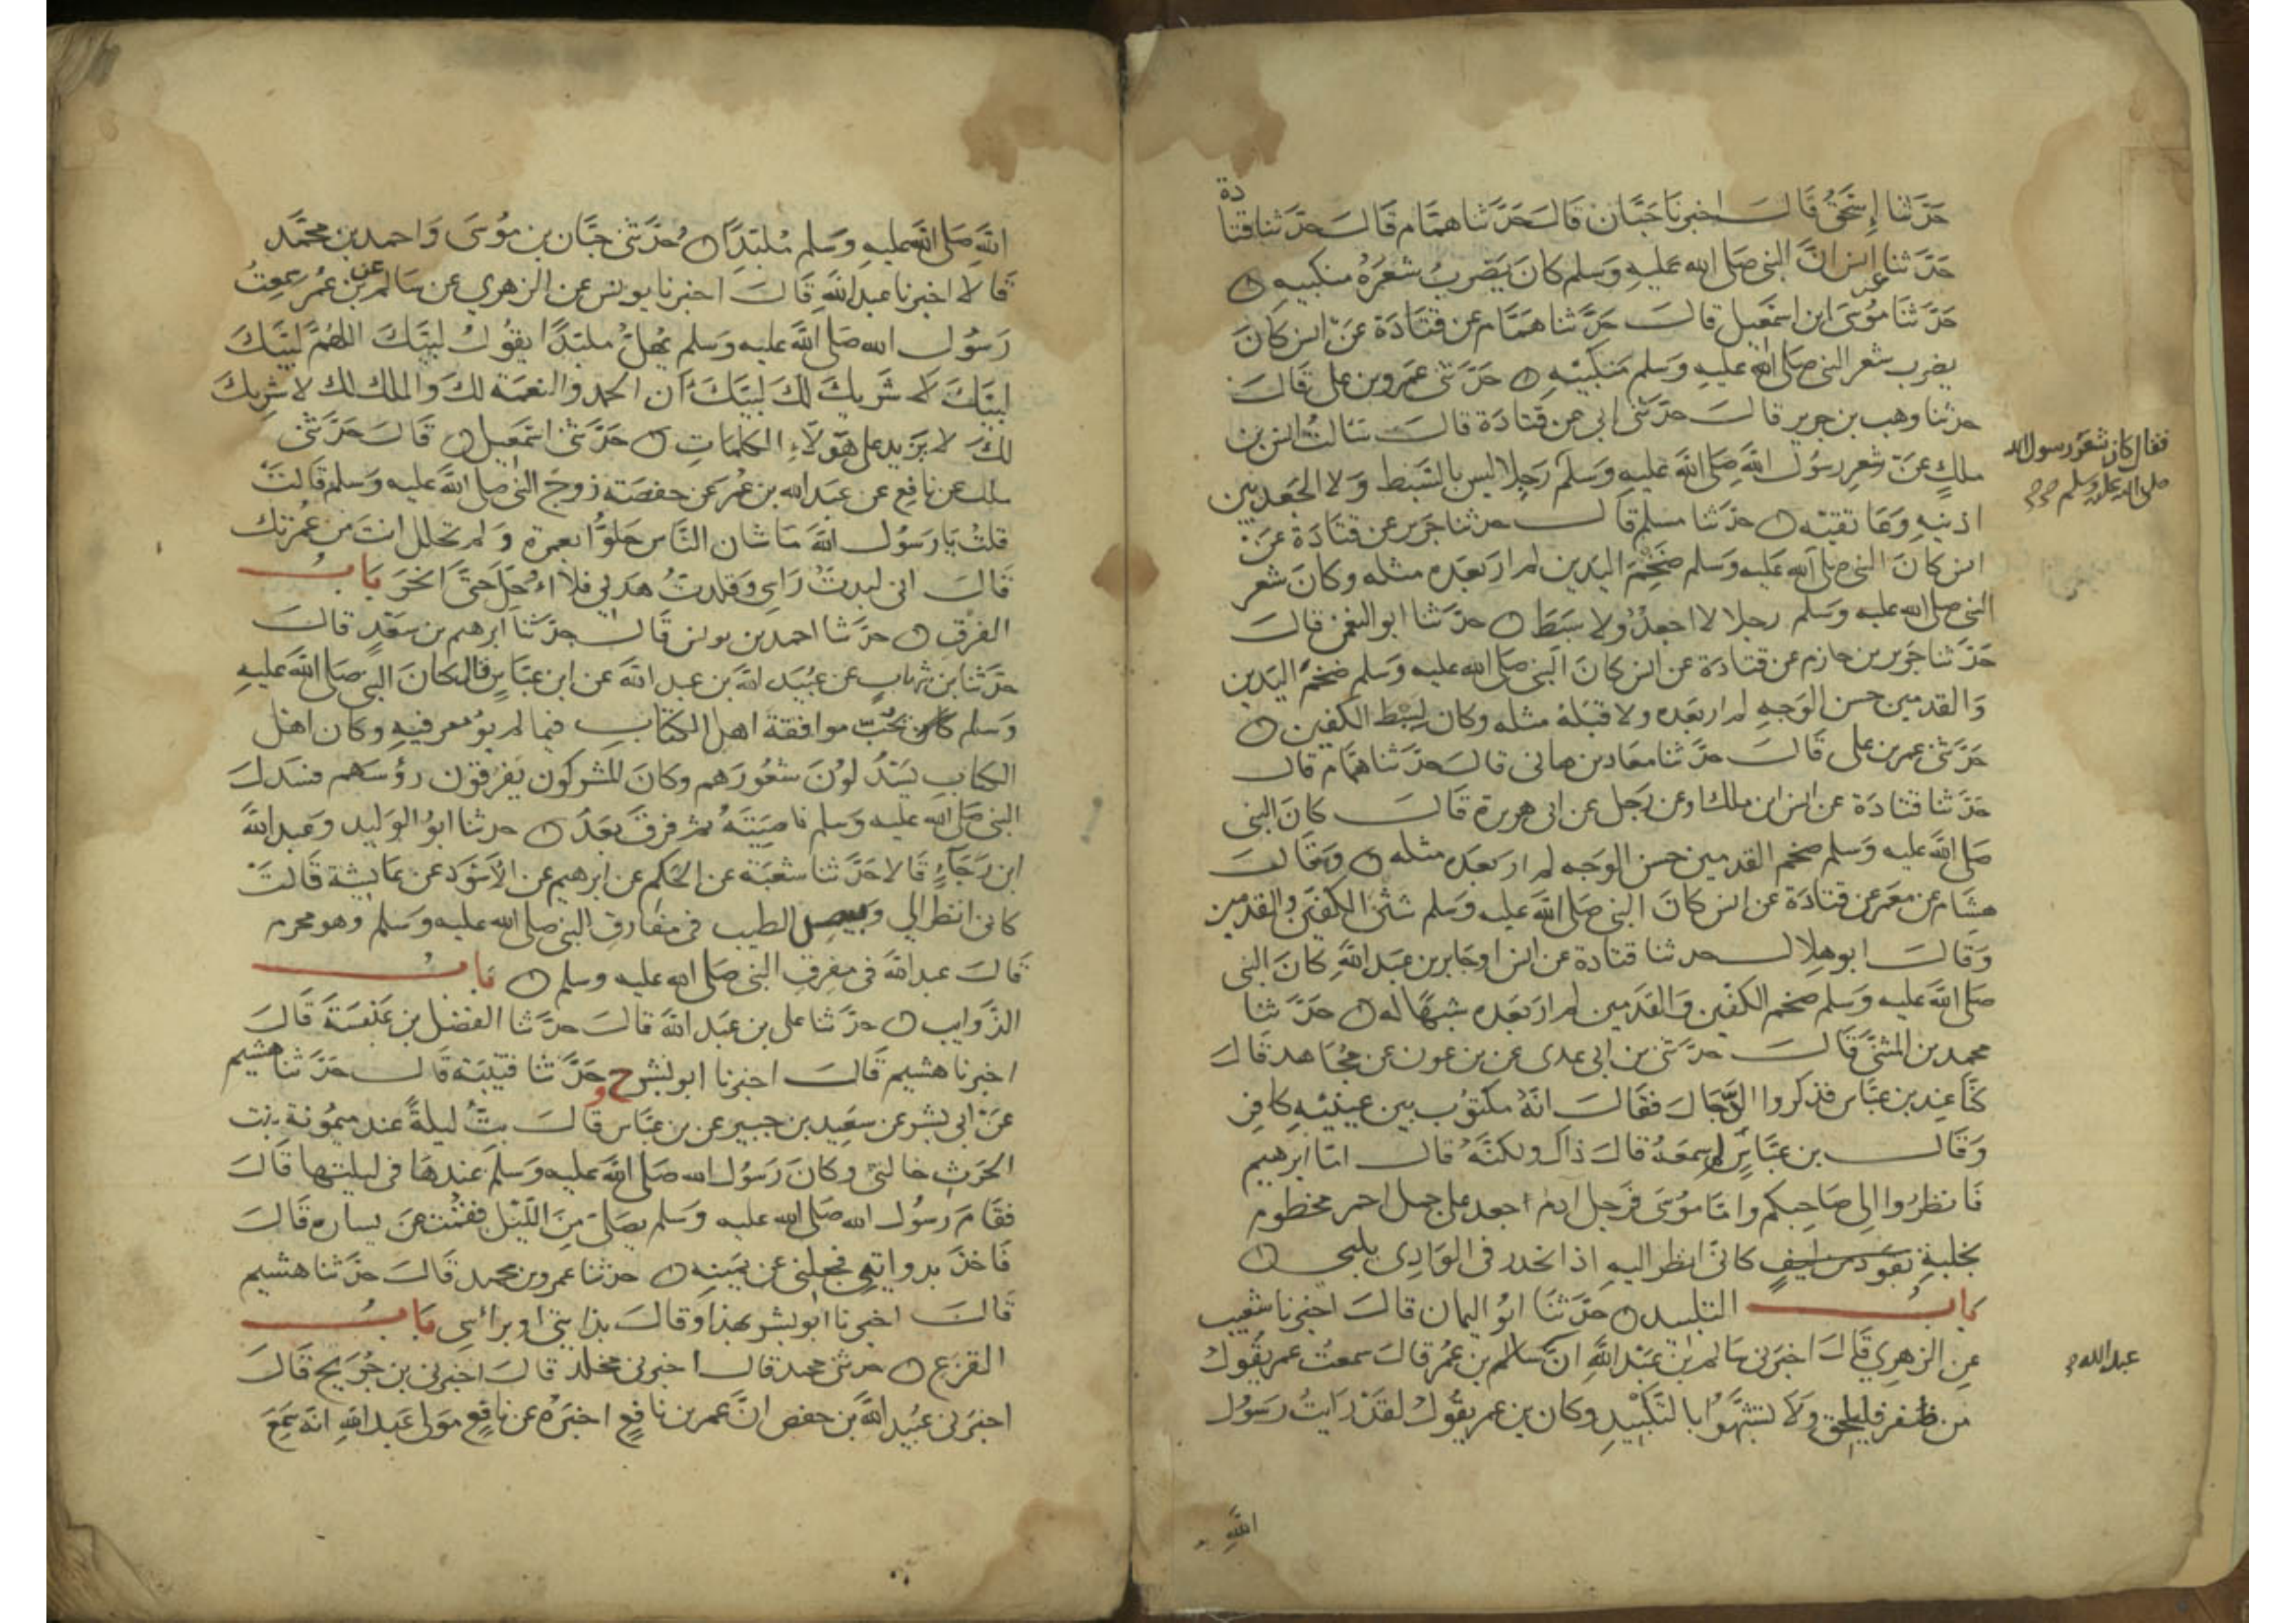 حَدَّثنا إسحَقُ قَالَ اخبرنا حَبَّان قَالَ حَدَّثنا همَّام قَالَ حدَّثنا قتادة
حَدَّثنا انس انَّ النبي صَلى الله عَليهِ وَسَلم كانَ يَضربُ شعَرُهُ منكبيه ه
حَدَّثنَا مُوسَى ابن اسمَعيل قالَ حَدَّثنا همَّام عن قتَادَة عَن انس كانَ
يضرب شعر النبي صَلى الله عَليهِ وَسَلم مَنكبَيْهِ ه حَدَّثني عَمرو بن علي قَالَ
حدثنا وهب بن جرير قالَ حدَّثني ابي عن قتادة قالَ سَالتُ انس بن
ملكٍ عَن شعرِ رسُول اللهِ صَلى الله عَليهِ وَسَلم رَجِلا ليس بالسَّبِط وَلا الجَعد بين
فقال كان شعَر رسول الله
صلى الله عليه وسلم صح
اذنيهِ وَعَاتقيهْ ه حدَّثنا مسلم قَالَ حدثنا جَرير عن قتَادَة عَن
انس كانَ النبي صَلى الله عَليه وَسَلم ضَخْمَ اليَدَين لم ار بَعدَه مثله وكانَ شعر
النبي صلى الله عليه وَسَلم رجِلا لا جعدٌ ولا سَبَط ه حدَّثنا ابو النعمن قالَ
حَدَّثنا جَرير بن حازم عن قتادَة عن انس كانَ النبي صَلى الله عليه وَسَلم ضخمَ اليَدَين
وَالقدمين حسن الوَجهِ لم ار بعَده ولا قبَلهُ مثله وكانَ بسط الكفين ه
حَدَّثني عمر بن علي قَالَ حدَّثنا معَاذ بن هاني قالَ حدَّثنا همَّام قال
حَدَّثنا قتادَة عن انس ابن ملك او عن رَجل عن ابي هريرة قَالَ كانَ النبي
صَلى الله عليه وَسَلم ضخم القدمين حسن الوَجه لم ار بَعدَه مثله ه وَقَالَ
هشام عن معمَر عن قتادَة عن انس كانَ النبي صَلى الله عليه وَسَلم شثن الكفين والقدمين
وَقَالَ ابو هلال حدثنا قتادة عن انس او جَابر بن عَبد الله كانَ النبي
صَلى الله عَليه وَسَلم ضخم الكفين وَالقدَمين لم ار بَعده شبهًا له ه حَدَّثنا
محمد بن المثنَّى قَالَ حدَّثني بن ابي عدي عن بن عون عن مجُاهد قَالَ
كنَّا عند بن عبَّاس فذكروا الدَّجال فقَالَ انَّهُ مكتوُب بين عينيْه كافِر
وَقَالَ بن عبَّاسٍ لم اسمَعهُ قالَ ذاك ولكنَّهُ قالَ امّا ابرهيم
فَانظروُا الي صَاحبكم وامَّا موُسَى فرَجل ادم اجعد على جمل احمر مخطوم
بخلبةٍ كاني انظر اليهِ اذ انحدر في الوَادِي يلبي ه
بابُ التلبيد ه حدَّثنَا ابوُ اليمان قالَ اخبرنا شعيب
عن الزهرِي قَالَ اخبَرني سَالم بن عَبْد اللهِ انَّ بن عُمر قالَ سمعتُ عمر يَقوُلُ
عبد الله
من ظفر فليحلق وَلاَ تشبَّهوُا بالتلبيدِ وكان بن عمر يقوُلُ لقدْ رَايتُ رَسوُل
الله
اللهِ صَلى الله عليهِ وَسَلم مُلبّدًا ه حُدَّثني حبَّان بن موُسَى وَاحمد بن محمَّد
قَالا اخبرنا عبد اللهِ قَالَ اخبرنا يونس عن الزهري عن سَالم عن بن عُمر سمعتُ
رَسُول الله صَلى الله عليه وَسَلم يُهلُّ ملبّدًا يقوُلُ لبيَّكَ اللهُمَّ لبيَّكَ
لبيَّكَ لاَ شَريكَ لكَ لبيَّكَ ان الحمد والنعمَة لكَ والملك لك لا شريكَ
لكَ لا يَزيد على هَؤلاَءِ الكلمَاتِ ه حَدَّثني اسمَعيل ه قَالَ حَدَّثني
ملك عن نافِع عن عبَد الله بن عُمر عن حفصَة زوجَ النبي صَلى الله عليه وَسَلم قَالتْ
قلتُ يا رَسوُل الله مَا شان النَّاس حَلوُّا بعمرة وَلم تحلل انتَ من عُمرتك
قَالَ اني لبدتُ رَاسي وَقلدتُ هدَيي فلا اُحِلّ حَتَّى انحَرَ بابُ
الفرَق ه حدَّثنا احمد بن يونس قَالَ حدَّثنا ابرهيم بن سَعَدٍ قالَ
حدَّثنا بن شهابٍ عن عبُيَد الله بن عبد الله عن ابن عبَّاسٍ قال كانَ النبي صَلى الله عليهِ
وَسَلم يحُبّ موافقَة اهل الكتاب فيما لم يوُمر فيهِ وكان اهل
الكتاب يَسْدُلوُنَ شعُورَهم وكانَ المشركون يَفرقون رؤسَهم فسَدلَ
النبي صَلى الله عليه وَسَلم ناصِيَتَهُ ثم فرق بعَدُ ه حدثنا ابوُ الوَليد وَعبد الله
ابن رَجَاءٍ قَالا حَدَّثنا شعَبَة عن الحكم عن ابرهيم عن الاَسْوَد عن عَايشة قَالتْ
كاني انظر الي وَبيص الطيب في مفارق النبي صلى الله عليه وسَلم وهو محرم
قَالَ عبد الله في مفرِق النبي صَلى الله عليه وسلم ه بابُ
الذَّوايب ه حدَّثنا علي بن عبَد الله قَالَ حدَّثنا الفضل بن عَنبسَة قَالَ
اخبرنا هشيم قَالَ اخبَرنا ابو بشر ح وَحَدَّثنا قتَيبَة قَالَ حَدَّثنا هشيم
عَن ابي بشر عن سَعِيد بن جبير عن بن عبَّاس قالَ بتُّ ليلةً عند ميموُنة بنت
الحَرث خالتي وكانَ رَسوُل الله صَلى الله عليه وَسَلم عندهَا في ليلتها قَالَ
فقَامَ رَسوُل الله صَلى الله عليه وَسَلم يصَلي مِنَ اللَّيْل فقمُت عَن يساره قَالَ
فَاخذَ بذوابتي فجعلني عن يمَينه ه حدثنا عمرو بن محمد قَالَ حدَّثنا هشيم
قَالَ اخبرنا ابو بشر بهذا وَقالَ بذَابتي او برَاسِي بابُ
القزع ه حدثني محمد قالَ اخبرني مخلد قالَ اخبرني بن جُرَيج قَالَ
اخبَرني عبُيَد الله بن حفص انَّ عمر بن نافعٍ اخبَرهُ عن نافِعٍ مَولى عَبد اللهِ انّه سمعَ